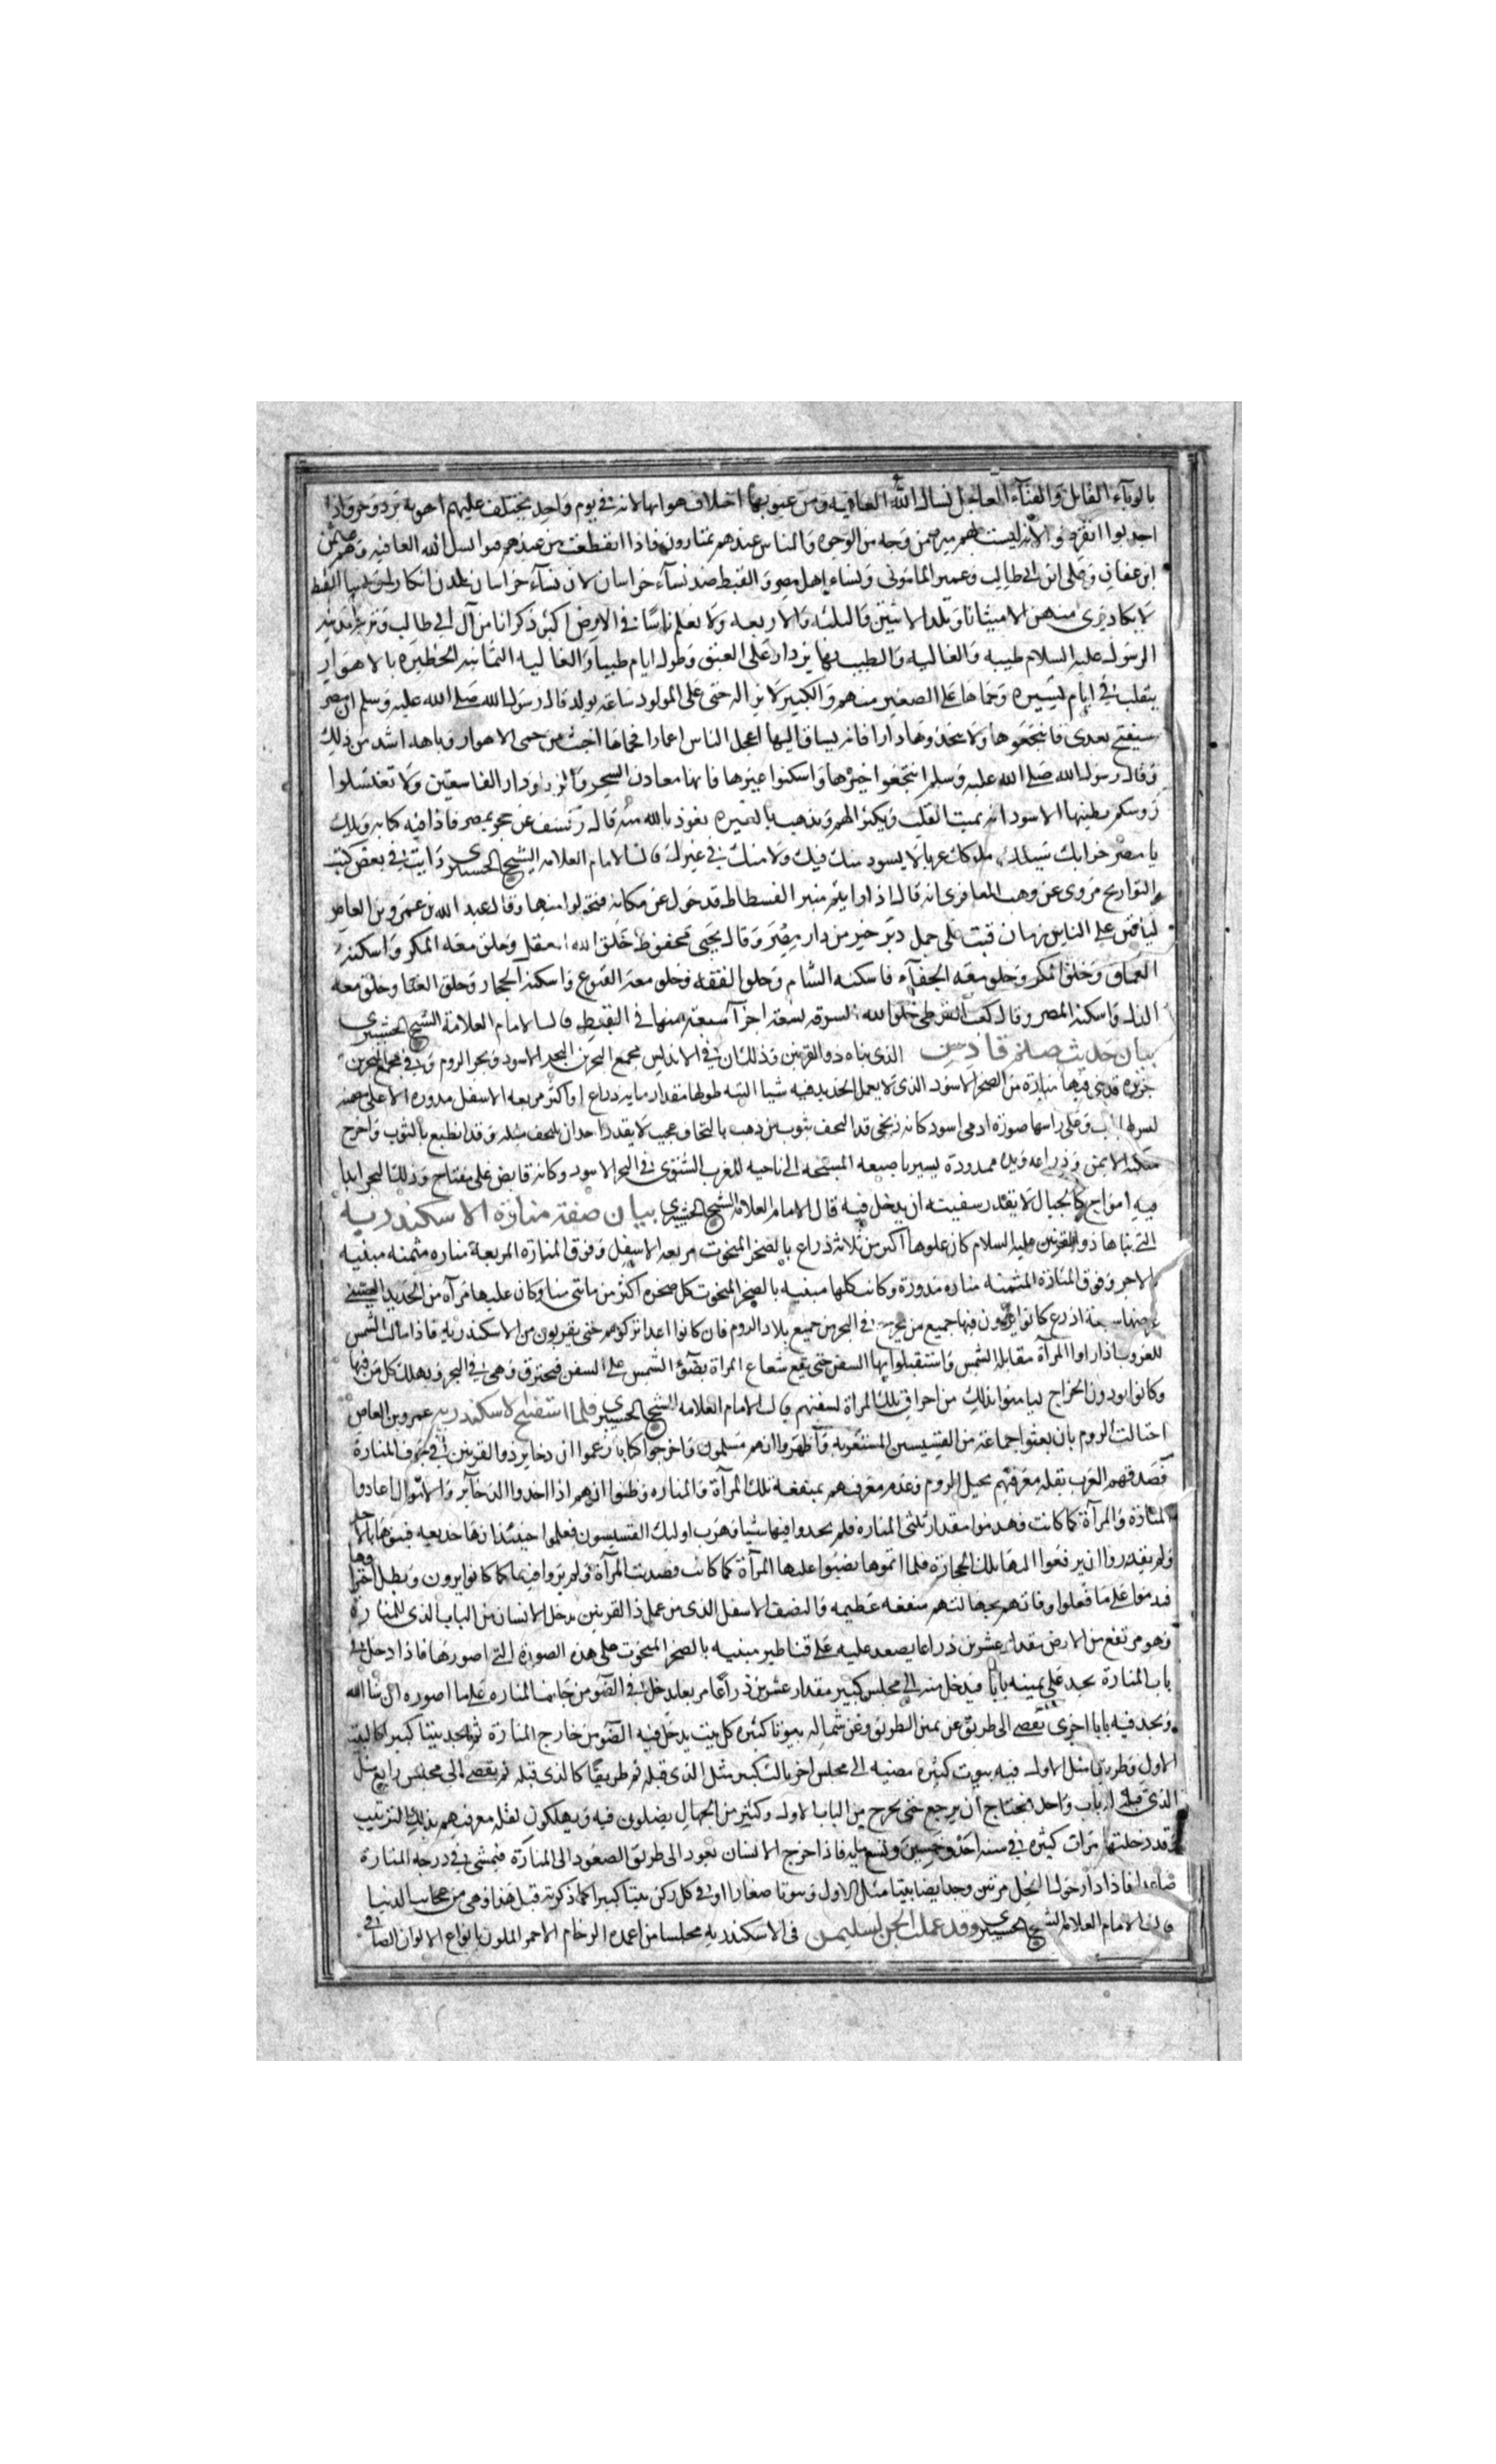 بالوباء القاتل والفناء العاجل نسال الله العافيه ومن عيوبها اختلاف هوائها لانه في يوم واحد يختلف عليهم اهوية برد وحر واذا
اجدبوا انقرضوا لانه ليست لهم ميره من وجه من الوجوه والناس عندهم يمتارون فاذا انقطعت من عندهم هوا نسل الله العافيه
ابن عفان وعلى ابن ابي طالب وعمير المامونى ونساء اهل مصر والقبط ضد نسآء خراسان لان نسآء خراسان يلدن
لا يكاد يرى منهن الا ميناثا وتلد الاثنين والثلثه والاربعه ولا نعلم ناسا في الارض اكثر ذكرانا من آل ابي طالب
الرسول عليه السلام طيبه والغاليه والطيب بها يزداد على العتق وطول ايام طيبا والغاليه الثمانيه الخطيره بالاهواز
ينقلب في ايام يسيره وحماها على الصغير منهم والكبير لا يزال حتى على المولود ساعة يولد قال رسول الله صلى الله عليه وسلم ان مصر
سيفتح بعدى فانتجعوها ولا تتخذوها دارا فانه يساق اليها اعجل الناس اعمارا فحماها اخبث من حمى الاهواز وباهها اشد من ذلك
وقال رسول الله صلى الله عليه وسلم انتجعوا خيرها واسكنوا غيرها فانها معادن السحر والزنا ودار الفاسقين ولا تغسلوا
روسكم بطينها الاسود انه يميت القلب ويكثر الهم ويذهب بالغيره نعوذ بالله منه قال كشف عن حجر بمصر فاذا فيه كتابه ويلك
يا مصر خرابك نيلك ملوكك غربا لا يسود منك فيك ولا منك في غيرك قال الامام العلامه الشيخ رايت في بعض كتب
التواريخ مروى عن وهب المعافرى انه قال اذا رايتم منبر الفسطاط قد حول عن مكانه فتحولوا منها وقال عبد الله بن عمرو بن العاص
لياتين على الناس زمان قتب على جمل دبر خير من دار بمصر وقال يحيى محفوظ خلق الله العقل وخلق معه المكر واسكنه
العراق وخلق المكر وخلق معه الجفآء فاسكنه الشام وخلق الفقه وخلق معه القنوع واسكنه الحجاز وخلق الغنا وخلق معه
الذل واسكنه المصر وقال كعب القرطى خلق الله السرقه تسعة اجزآ سبعة منها في القبط قال الامام العلامة الشيخ
بيان حديث صنم قادس الذى بناه ذو القرنين وذلك ان في الاندلس مجمع البحرين البحر الاسود وبحر الروم وفي مجمع البحرين
جزيره قد بنى فيها منارة من الصخر الاسود الذى لا يعمل الحديد فيه شيا البته طولها مقدار مايه ذراع او اكثر مربعه الاسفل مدوره الاعلى
وعلى راسها صورة ادمى اسود كانه زنجى قد التحف بثوب من ذهب بالتحاف عجيب لا يقدر احد ان يلتحف مثله وقد انطبع بالثوب واخرج
منكبه الايمن وذراعه ويده ممدودة يسير باصبعه المسبحه الى ناحيه المغرب الشتوى في البحر الاسود وكانه قابض على مفتاح وذلك البحر ابدا
فيه امواج كالجبال لا يقدر سفينه ان يدخل فيه قال الامام العلامه الشيخ بيان صفة منارة الاسكندرية
التى بناها ذو القرنين عليه السلام كان علوها اكثر من ثلاثه ذراع بالصخر المنحوت مربعه الاسفل وفوق المنارة المربعة مناره مثمنه مبنيه
بالاجر وفوق المنارة المثمنه مناره مدورة وكانت كلها مبنيه بالصخر المنحوت كل صخره اكثر من مائتى منا وكان عليها مرآه من الحديد الصينى
عرضها سبعة اذرع كانوا يرون فيها جميع من يخرج في البحر من جميع بلاد الروم فان كانوا اعدا تركوهم حتى يقربون من الاسكندريه فاذا مالت الشمس
للغروب اداروا المرآة مقابلة الشمس واستقبلوا بها السفن حتى يقع شعاع المراة بضوء الشمس على السفن فتحترق وهى في البحر ويهلك كل من فيها
وكانوا يودون الخراج ليامنوا بذلك من احراق تلك المراة لسفنهم قال الامام العلامه الشيخ فلما استفتح الاسكندريه عمرو بن العاص
احتالت الروم بان بعثوا جماعة من القسيسين المستعربه واظهروا انهم مسلمون واخرجوا كتابا زعموا ان ذخاير ذو القرنين في جوف المنارة
فصدقهم العرب بقله معرفتهم بحيل الروم وعدم معرفتهم بمنفعة تلك المرآة والمناره وظنوا انهم اذا اخذوا الذخآير والاموال اعادوا
المنارة والمرآة كما كانت فهدموا مقدار ثلثى المناره فلم يجدوا فيها شيا وهرب اوليك القسيسون فعلموا حينئذ انها خديعه فبنوها بالاجر
ولم يقدروا ان يرفعوا اليها تلك الحجارة فلما اتموها نصبوا عليها المرآة كما كانت فصديت المرآة ولم يروا فيها كما كانوا يرون وبطل احراقها
فندموا على ما فعلوا وفاتهم بجهالتهم منفعه عظيمه والنصف الاسفل الذى من عمل ذا القرنين يدخل الانسان من الباب الذى للمنارة
وهو مرتفع من الارض مقدار عشرين ذراعا يصعد عليه على قناطير مبنيه بالصخر المنحوت على هذه الصورة التى اصورها فاذا دخل من
باب المنارة يجد على يمينه بابا فيدخل منه الى مجلس كبير مقدار عشرين ذراعا مربعا يدخل في الضو من جانبى المناره على ما اصوره ان شا الله
ويجد فيه بابا اخرى يفضى الى طريق عن يمين الطريق وعن شماله بيوتا كثيره كل بيت يدخل فيه الضو من خارج المنارة ثم يجد بيتا كبيرا كالبيت
الاول وطريق مثل الاول فيه بيوت كثيره مضيه الى مجلس اخر بالتكبير مثل الذى قبله ثم طريقا كالذى قبله ثم يفضى الى مجلس رابع مثل
الذى قبله له باب واحد يحتاج ان يرجع حتى يخرج من الباب الاول وكثير من الجهال يضلون فيه ويهلكون لقلة معرفتهم بذلك الترتيب
وقد دخلتها مرات كثيره في سنه احد وخمسين وتسع مايه فاذا خرج الانسان يعود الى طريق الصعود الى المنارة فيمشى في درجه المنارة
صاعدا فاذا دار حول النخل مرتين وجد ايضا بيتا مثل الاول وبيوتا صغارا وفي كل ركن بيتا كبيرا كما ذكرته قبل هذا وهى من عجائب الدنيا
قال الامام العلامه الشيخ وقد عملت الجن لسليمن في الاسكندريه مجلسا من اعمدة الرخام الاحمر الملون بانواع الالوان الصافى